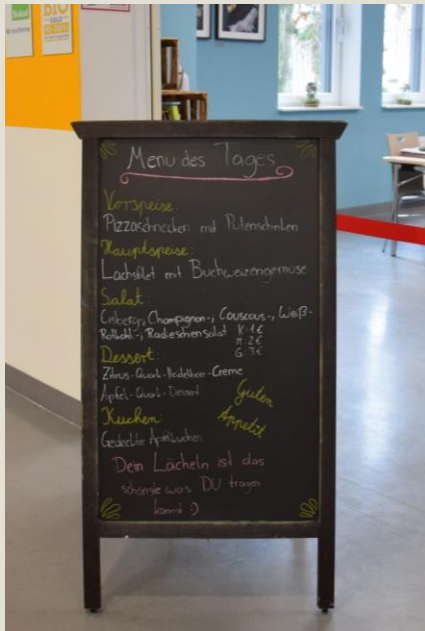 BIO
Menu des Tages
Vorspeise:
Pizzaschnecken mit Putenschinken
Hauptspeise:
Lachsfilet mit Buchweizengemüse
Salat:
Eisberg-, Champignon-, Couscous-, Weiß-
Rotkohl-, Radieschensalat K: 1€
M: 2€
G: 3€
Dessert:
Zitrus-Quark-Heidelbeer-Creme
Apfel-Quark-Dessert
Guten
Appetit
Kuchen:
Gedeckte Apfelkuchen
Dein Lächeln ist das
schönste was DU tragen
kannst :)